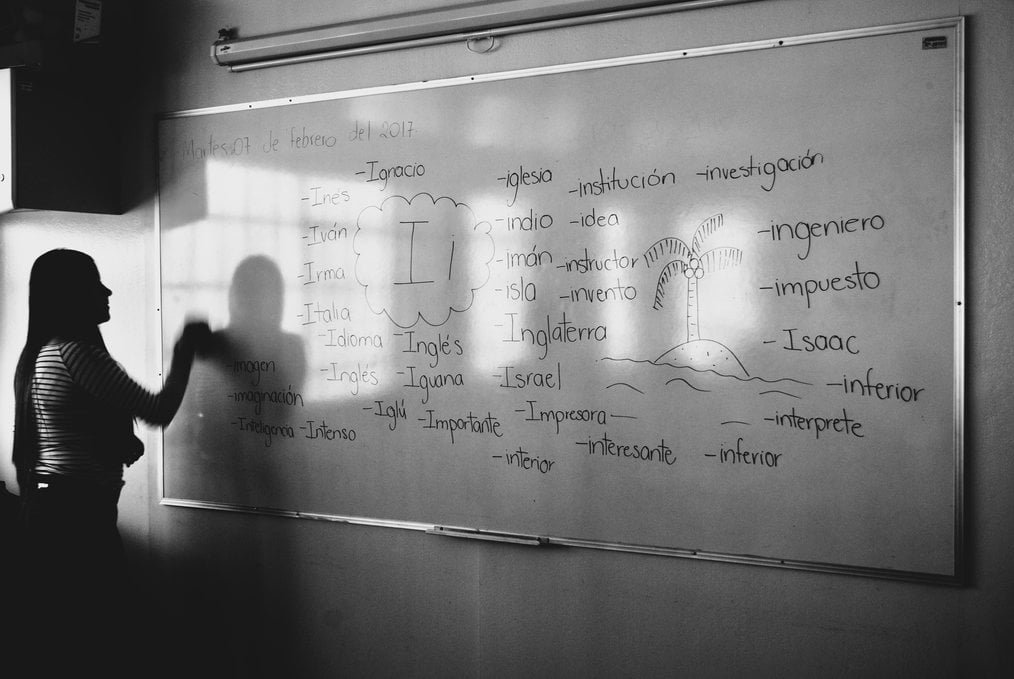 Martes 07 de febrero del 2017
-Ignacio
-Inés
-Iván
-Irma
-Italia
I i
-Idioma
-Inglés
-Inglés
-Iguana
-Iglú
-Importante
-imagen
-imaginación
-Inteligencia
-Intenso
-iglesia
-institución
-investigación
-indio
-idea
-imán
-instructor
-isla
-invento
-Inglaterra
-Israel
-Impresora
-interior
-interesante
-inferior
-ingeniero
-impuesto
-Isaac
-inferior
-interprete